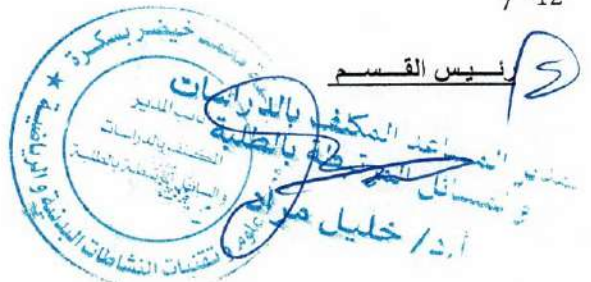 12
رئيس القسم
المساعد المكلف بالدراسات
و المسائل المرتبطة بالطلبة
أ.د/ خليل مراد
خيضر بسكرة
نائب المدير
المكلف بالدراسات
و المسائل المرتبطة بالطلبة
علوم و تقنيات النشاطات البدنية و الرياضية